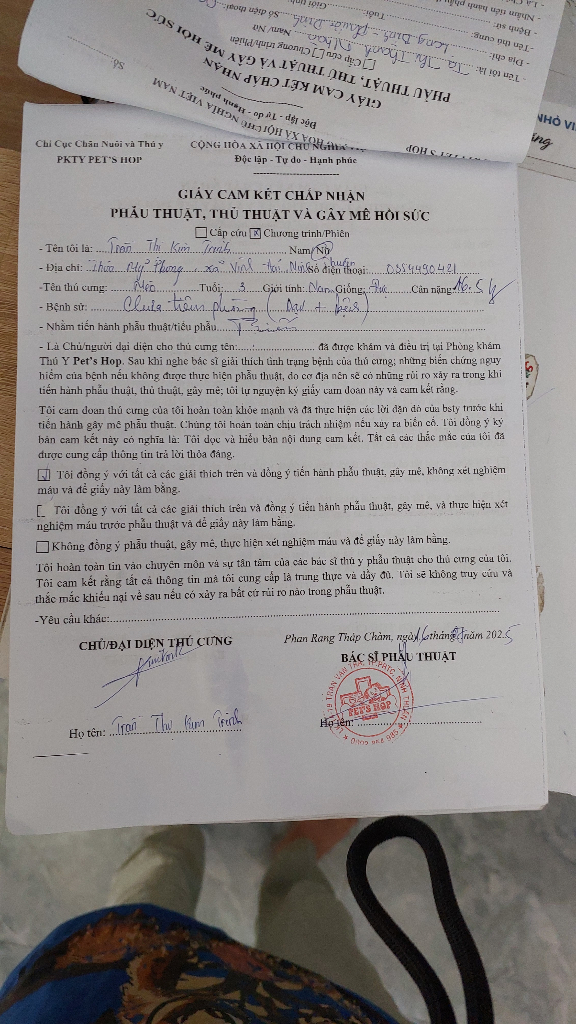 - Nhận tiến hành phẫu
- Bệnh sử:
- Tên thú cưng: Tuổi: Giới tính:
- Địa chỉ: Long Bình - Phước Dinh Số điện thoại:
- Tên tôi là: Tạ Thị Thanh Nhàn Nam/ Nữ
Cấp cứu Chương trình/Phiên
PHẪU THUẬT, THỦ THUẬT VÀ GÂY MÊ HỒI SỨC
GIẤY CAM KẾT CHẤP NHẬN
Độc lập - Tự do - Hạnh phúc
HÒA XÃ HỘI CHỦ NGHĨA VIỆT NAM
Số
S HOP
NHỎ VI
Chi Cục Chăn Nuôi và Thú y
PKTY PET'S HOP
CỘNG HÒA XÃ HỘI CHỦ NGHĨA
Độc lập - Tự do - Hạnh phúc
GIẤY CAM KẾT CHẤP NHẬN
PHẪU THUẬT, THỦ THUẬT VÀ GÂY MÊ HỒI SỨC
Cấp cứu x Chương trình/Phiên
- Tên tôi là: Trần Thị Kim Trinh Nam/ Nữ
- Địa chỉ: Mỹ Phong - xã Vĩnh Hải Ninh Số điện thoại: 0354490421
-Tên thú cưng: Mèo Tuổi: 3 Giới tính: Nam Giống: Đực Cân nặng
- Bệnh sử: Chưa tiêm phòng
- Nhằm tiến hành phẫu thuật/tiểu phẫu Triến
- Là Chủ/người đại diện cho thú cưng tên: đã được khám và điều trị tại Phòng khám
Thú Y Pet's Hop. Sau khi nghe bác sĩ giải thích tình trạng bệnh của thú cưng; những biến chứng nguy
hiểm của bệnh nếu không được thực hiện phẫu thuật, do cơ địa nên sẽ có những rủi ro xảy ra trong khi
tiến hành phẫu thuật, thủ thuật, gây mê; tôi tự nguyện ký giấy cam đoan này và cam kết rằng.
Tôi cam đoan thú cưng của tôi hoàn toàn khỏe mạnh và đã thực hiện các lời dặn dò của bsty trước khi
tiến hành gây mê phẫu thuật. Chúng tôi hoàn toàn chịu trách nhiệm nếu xảy ra biến cố. Tôi đồng ý ký
bản cam kết này có nghĩa là: Tôi đọc và hiểu bản nội dung cam kết. Tất cả các thắc mắc của tôi đã
được cung cấp thông tin trả lời thỏa đáng.
Tôi đồng ý với tất cả các giải thích trên và đồng ý tiến hành phẫu thuật, gây mê, không xét nghiệm
máu và để giấy này làm bằng.
Tôi đồng ý với tất cả các giải thích trên và đồng ý tiến hành phẫu thuật, gây mê, và thực hiện xét
nghiệm máu trước phẫu thuật và để giấy này làm bằng.
Không đồng ý phẫu thuật, gây mê, thực hiện xét nghiệm máu và để giấy này làm bằng.
Tôi hoàn toàn tin vào chuyên môn và sự tận tâm của các bác sĩ thú y phẫu thuật cho thú cưng của tôi.
Tôi cam kết rằng tất cả thông tin mà tôi cung cấp là trung thực và đầy đủ. Tôi sẽ không truy cứu và
thắc mắc khiếu nại về sau nếu có xảy ra bất cứ rủi ro nào trong phẫu thuật.
-Yêu cầu khác:
CHỦ/ĐẠI DIỆN THÚ CƯNG
Phan Rang Tháp Chàm, ngày 16 tháng 2025
BÁC SĨ PHẪU THUẬT
PET'S HOP
Họ tên: Trần Thị Kim Trinh
Họ tên: